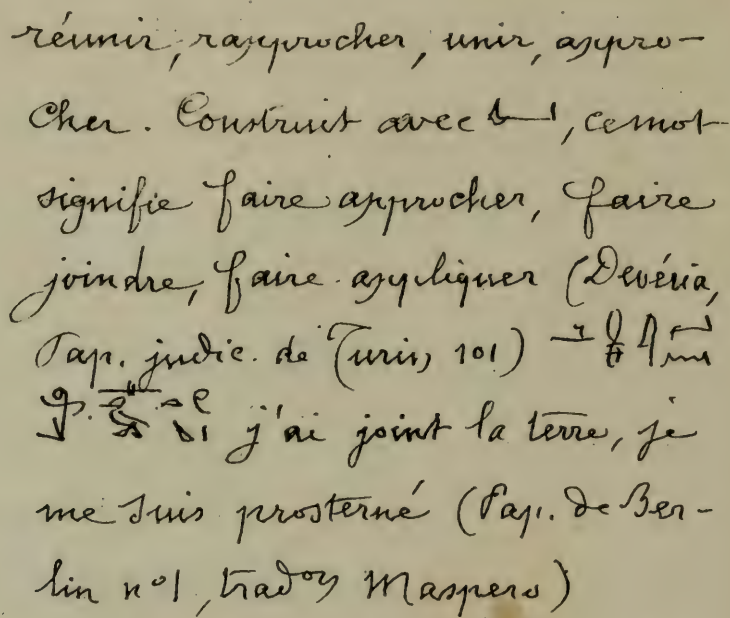 réunir, rapprocher, unir, appro-
cher. Construit avec , ce mot
signifie faire approcher, faire
joindre, faire appliquer (Devéria,
Pap. judic. de Turin, 101)
j'ai joint la terre, je
me suis prosterné (Pap. de Ber-
lin n° 1, tradon Maspero)